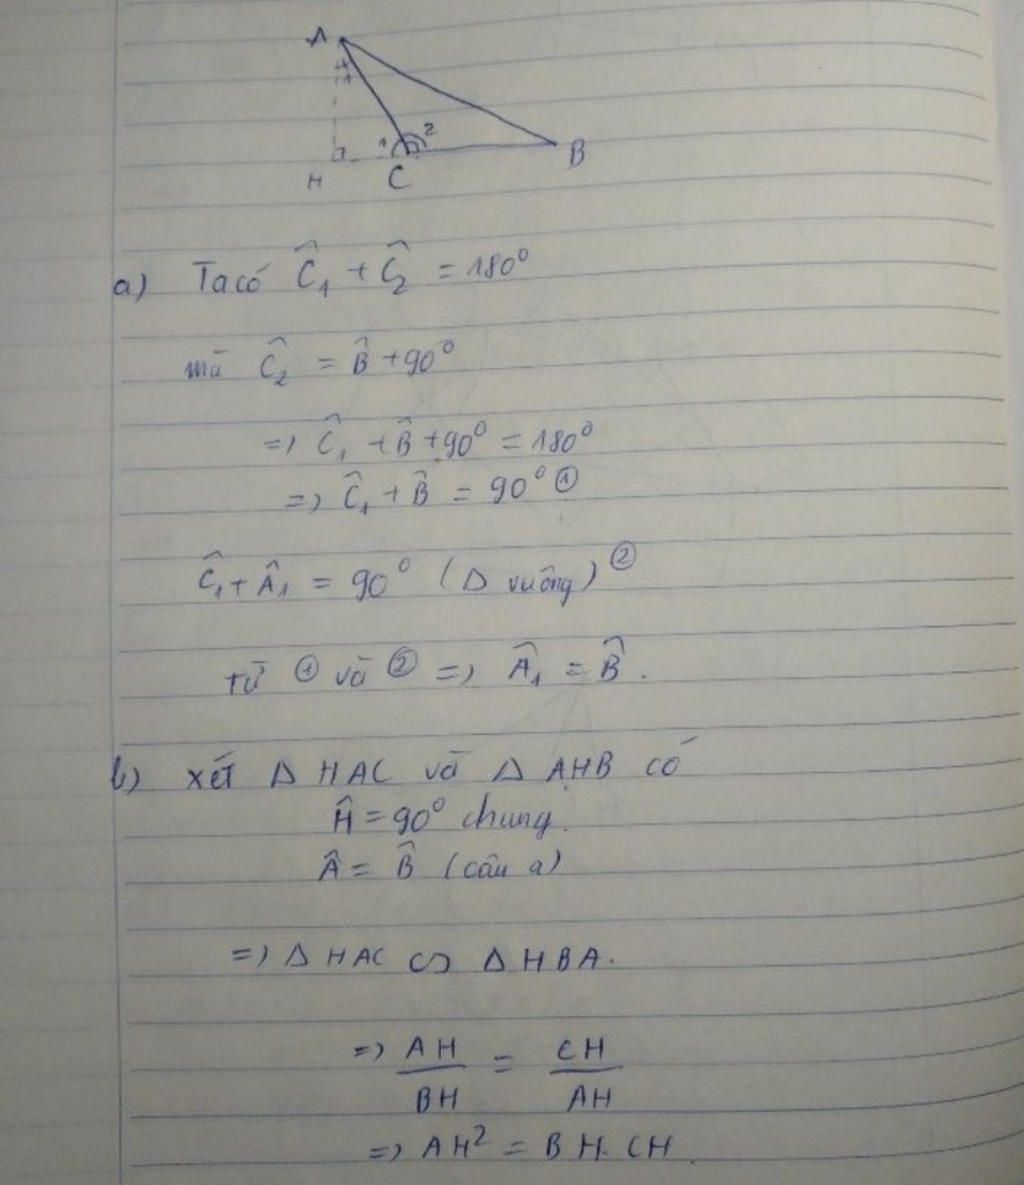 A
1 2
H C B
a) Ta có Ĉ₁ + Ĉ₂ = 180⁰
mà Ĉ₂ = B̂ + 90⁰
=) Ĉ₁ + B̂ + 90⁰ = 180⁰
=) Ĉ₁ + B̂ = 90⁰ ①
Ĉ₁ + Â₁ = 90⁰ (Δ vuông) ②
từ ① và ② =) Â₁ = B̂.
b) xét Δ HAC và Δ AHB có
Ĥ = 90⁰ chung.
Â = B̂ (câu a)
=) Δ HAC ∽ Δ HBA.
=) AH/BH = CH/AH
=) AH² = BH. CH